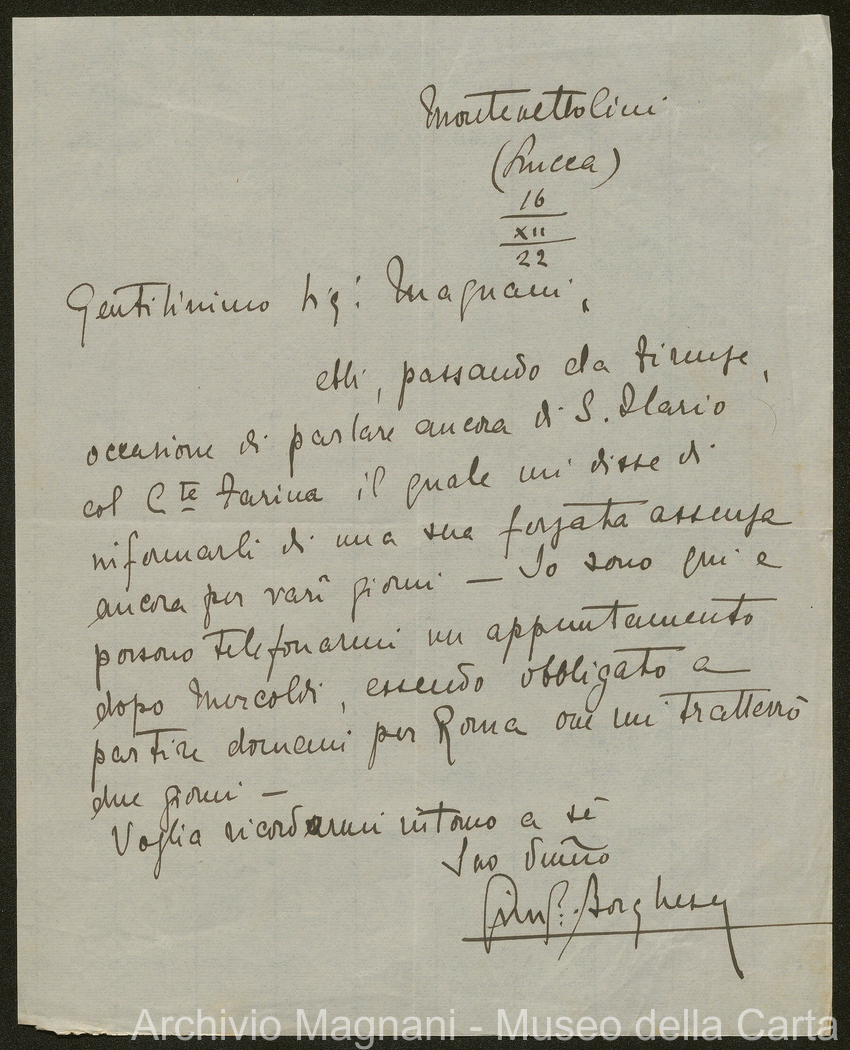 Montevettolini
(Lucca)
16
XII
22
Gentilissimo Sigʳ Magnani,
ebbi, passando da Firenze,
occasione di parlare ancora di S. Ilario
col Cte Farina il quale mi disse di
informarli di una sua forzata assenza
ancora per varî giorni — Io sono qui e
possono telefonarmi un appuntamento
dopo Mercoldì, essendo obbligato a
partire domani per Roma ove mi tratterrò
due giorni —
Voglia ricordarmi intorno a sè
Suo
Borghese
Archivio Magnani - Museo della Carta